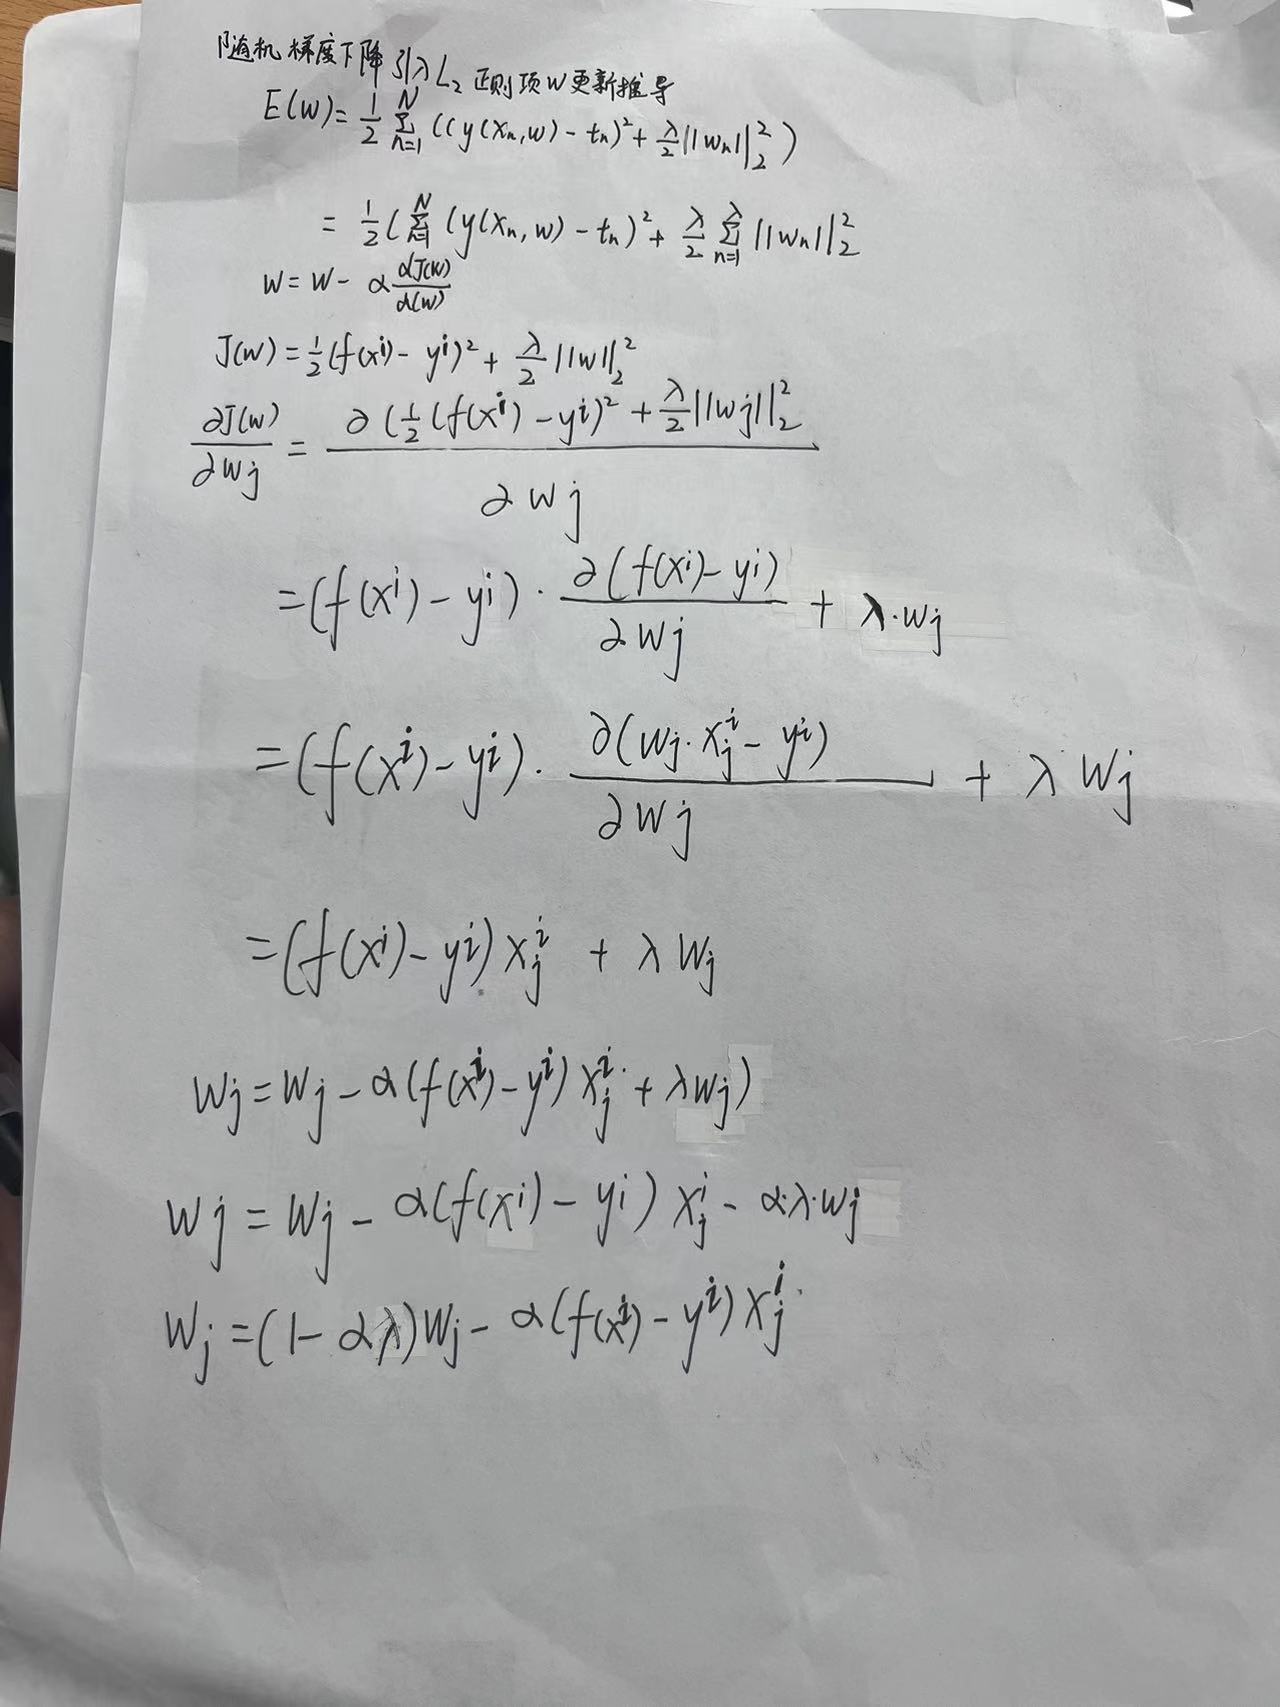 随机梯度下降引入L₂正则项W更新推导
E(w) = 1/2 Σ_{n=1}^{N} ((y(xₙ,w) - tₙ)² + λ/2 ||wₙ||₂²)
= 1/2 ( Σ_{n=1}^{N} (y(xₙ,w) - tₙ)² + λ/2 Σ_{n=1}^{λ} ||wₙ||₂²
W = W - α dJ(w)/d(w)
J(w) = 1/2 (f(xⁱ) - yⁱ)² + λ/2 ||w||₂²
∂J(w)/∂wj = ∂(1/2 (f(xⁱ) - yⁱ)² + λ/2 ||wj||₂² / ∂wj
= (f(xⁱ) - yⁱ) · ∂(f(xⁱ) - yⁱ)/∂wj + λ·wj
= (f(xⁱ) - yⁱ) · ∂(wj · xⱼⁱ - yⁱ)/∂wj + λ wj
= (f(xⁱ) - yⁱ) xⱼⁱ + λ wj
wj = wj - α(f(xⁱ) - yⁱ) xⱼⁱ + λwj)
wj = wj - α(f(xⁱ) - yⁱ) xⱼⁱ - α·λ·wj
wj = (1 - αλ)wj - α(f(xⁱ) - yⁱ) xⱼⁱ